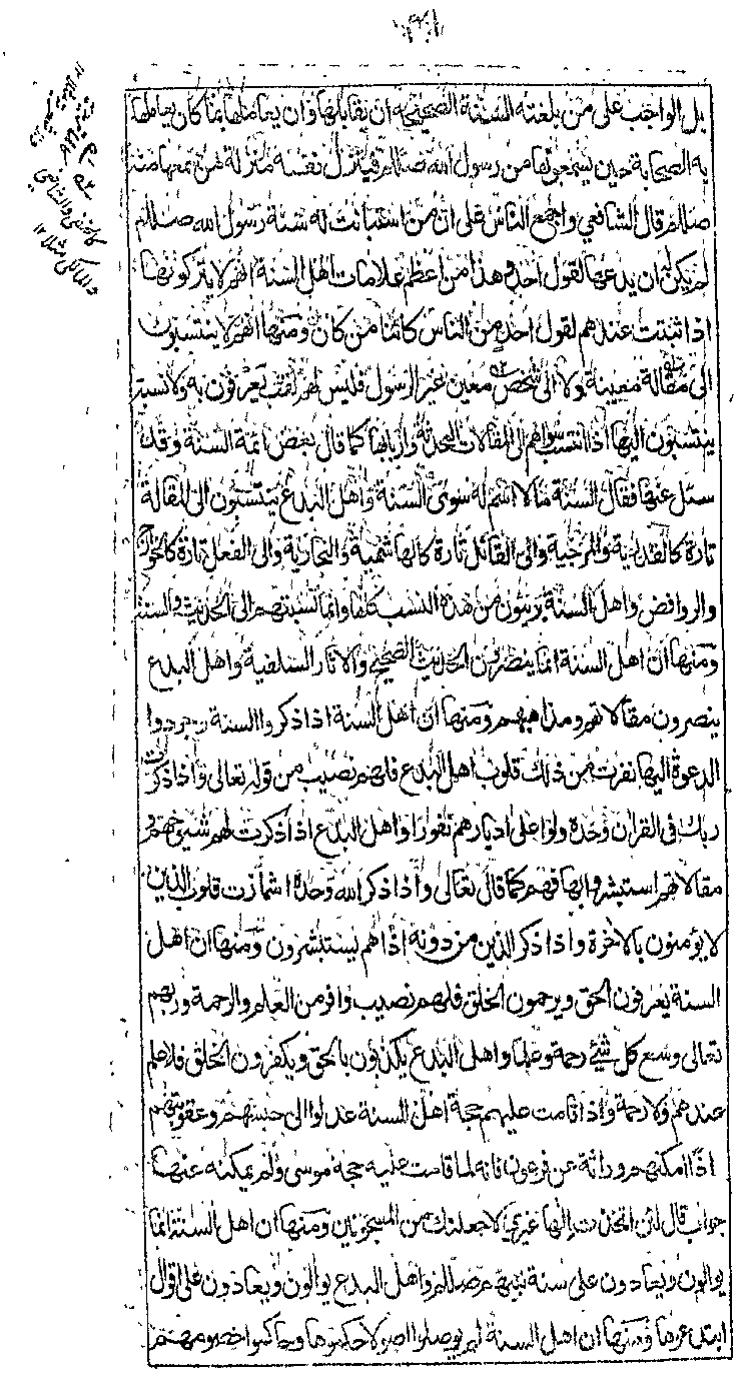 بل الواجب على من بلغته السنة الصحيحة ان يقابلها وان يعاملها بما كان يعاملها
به الصحابة حين يسمعونها من رسول الله صللم فينزل نفسه منزلة من سمعها منه
صللم قال الشافعي واجمع الناس على ان من استبانت له سنة رسول الله صللم
لم يكن له ان يدعها لقول احد وهذا من اعظم علامات اهل السنة انهم لا يتركونها
اذا ثبتت عندهم لقول احد من الناس كائنا من كان ومنها انهم لا ينتسبون
الى مقالة معينة ولا الى شخص معين غير الرسول فليس لهم لقب يعرفون به ولا نسبة
ينتسبون اليها اذا انتسب سواهم الى المقالات المحدثة واربابها كما قال بعض ائمة السنة وقد
سئل عنها فقال السنة مالا اسم له سوى السنة واهل البدع ينتسبون الى المقالة
تارة كالقدرية والمرجئية والى القائل تارة كالهاشمية والنجارية والى الفعل تارة كالخوارج
والروافض واهل السنة بريئون من هذه النسب كلها وانما نسبتهم الى الحديث والسنة
ومنها ان اهل السنة انما ينصرون الحديث الصحيح والاثار السلفية واهل البدع
ينصرون مقالاتهم ومذاهبهم ومنها ان اهل السنة اذا ذكروا السنة وجردوا
الدعوة اليها نفرت من ذلك قلوب اهل البدع فلهم نصيب من قوله تعالى واذا ذكرت
ربك فى القران وحده ولوا على ادبارهم نفورا واهل البدع اذا ذكرت لهم شيوخهم و
مقالاتهم استبشروا بها فهم كما قال تعالى واذا ذكر الله وحده اشمازت قلوب الذين
لا يؤمنون بالاخرة واذا ذكر الذين من دونه اذا هم يستبشرون ومنها ان اهل
السنة يعرفون الحق ويرحمون الخلق فلهم نصيب وافر من العلم والرحمة وربهم
تعالى وسع كل شيئ رحمة وعلما واهل البدع يكذبون بالحق ويكفرون الخلق فلا علم
عندهم ولا رحمة واذا قامت عليهم حجة اهل السنة عدلوا الى حبسهم وعقوبتهم
اذا امكنهم وراثة عن فرعون فانه لما قامت عليه حجة موسى ولم يمكنه عنها
جواب قال لئن اتخذت الها غيري لاجعلنك من المسجونين ومنها ان اهل السنة انما
يوالون ويعادون على سنة نبيهم صللم واهل البدع يوالون ويعادون على اقوال
ابتدعوها ومنها ان اهل السنة لم يوصلوا اصولا حكموها وحاكموا خصومهم
كالحنفي والشافعي
والمالكي مثلا ١٢